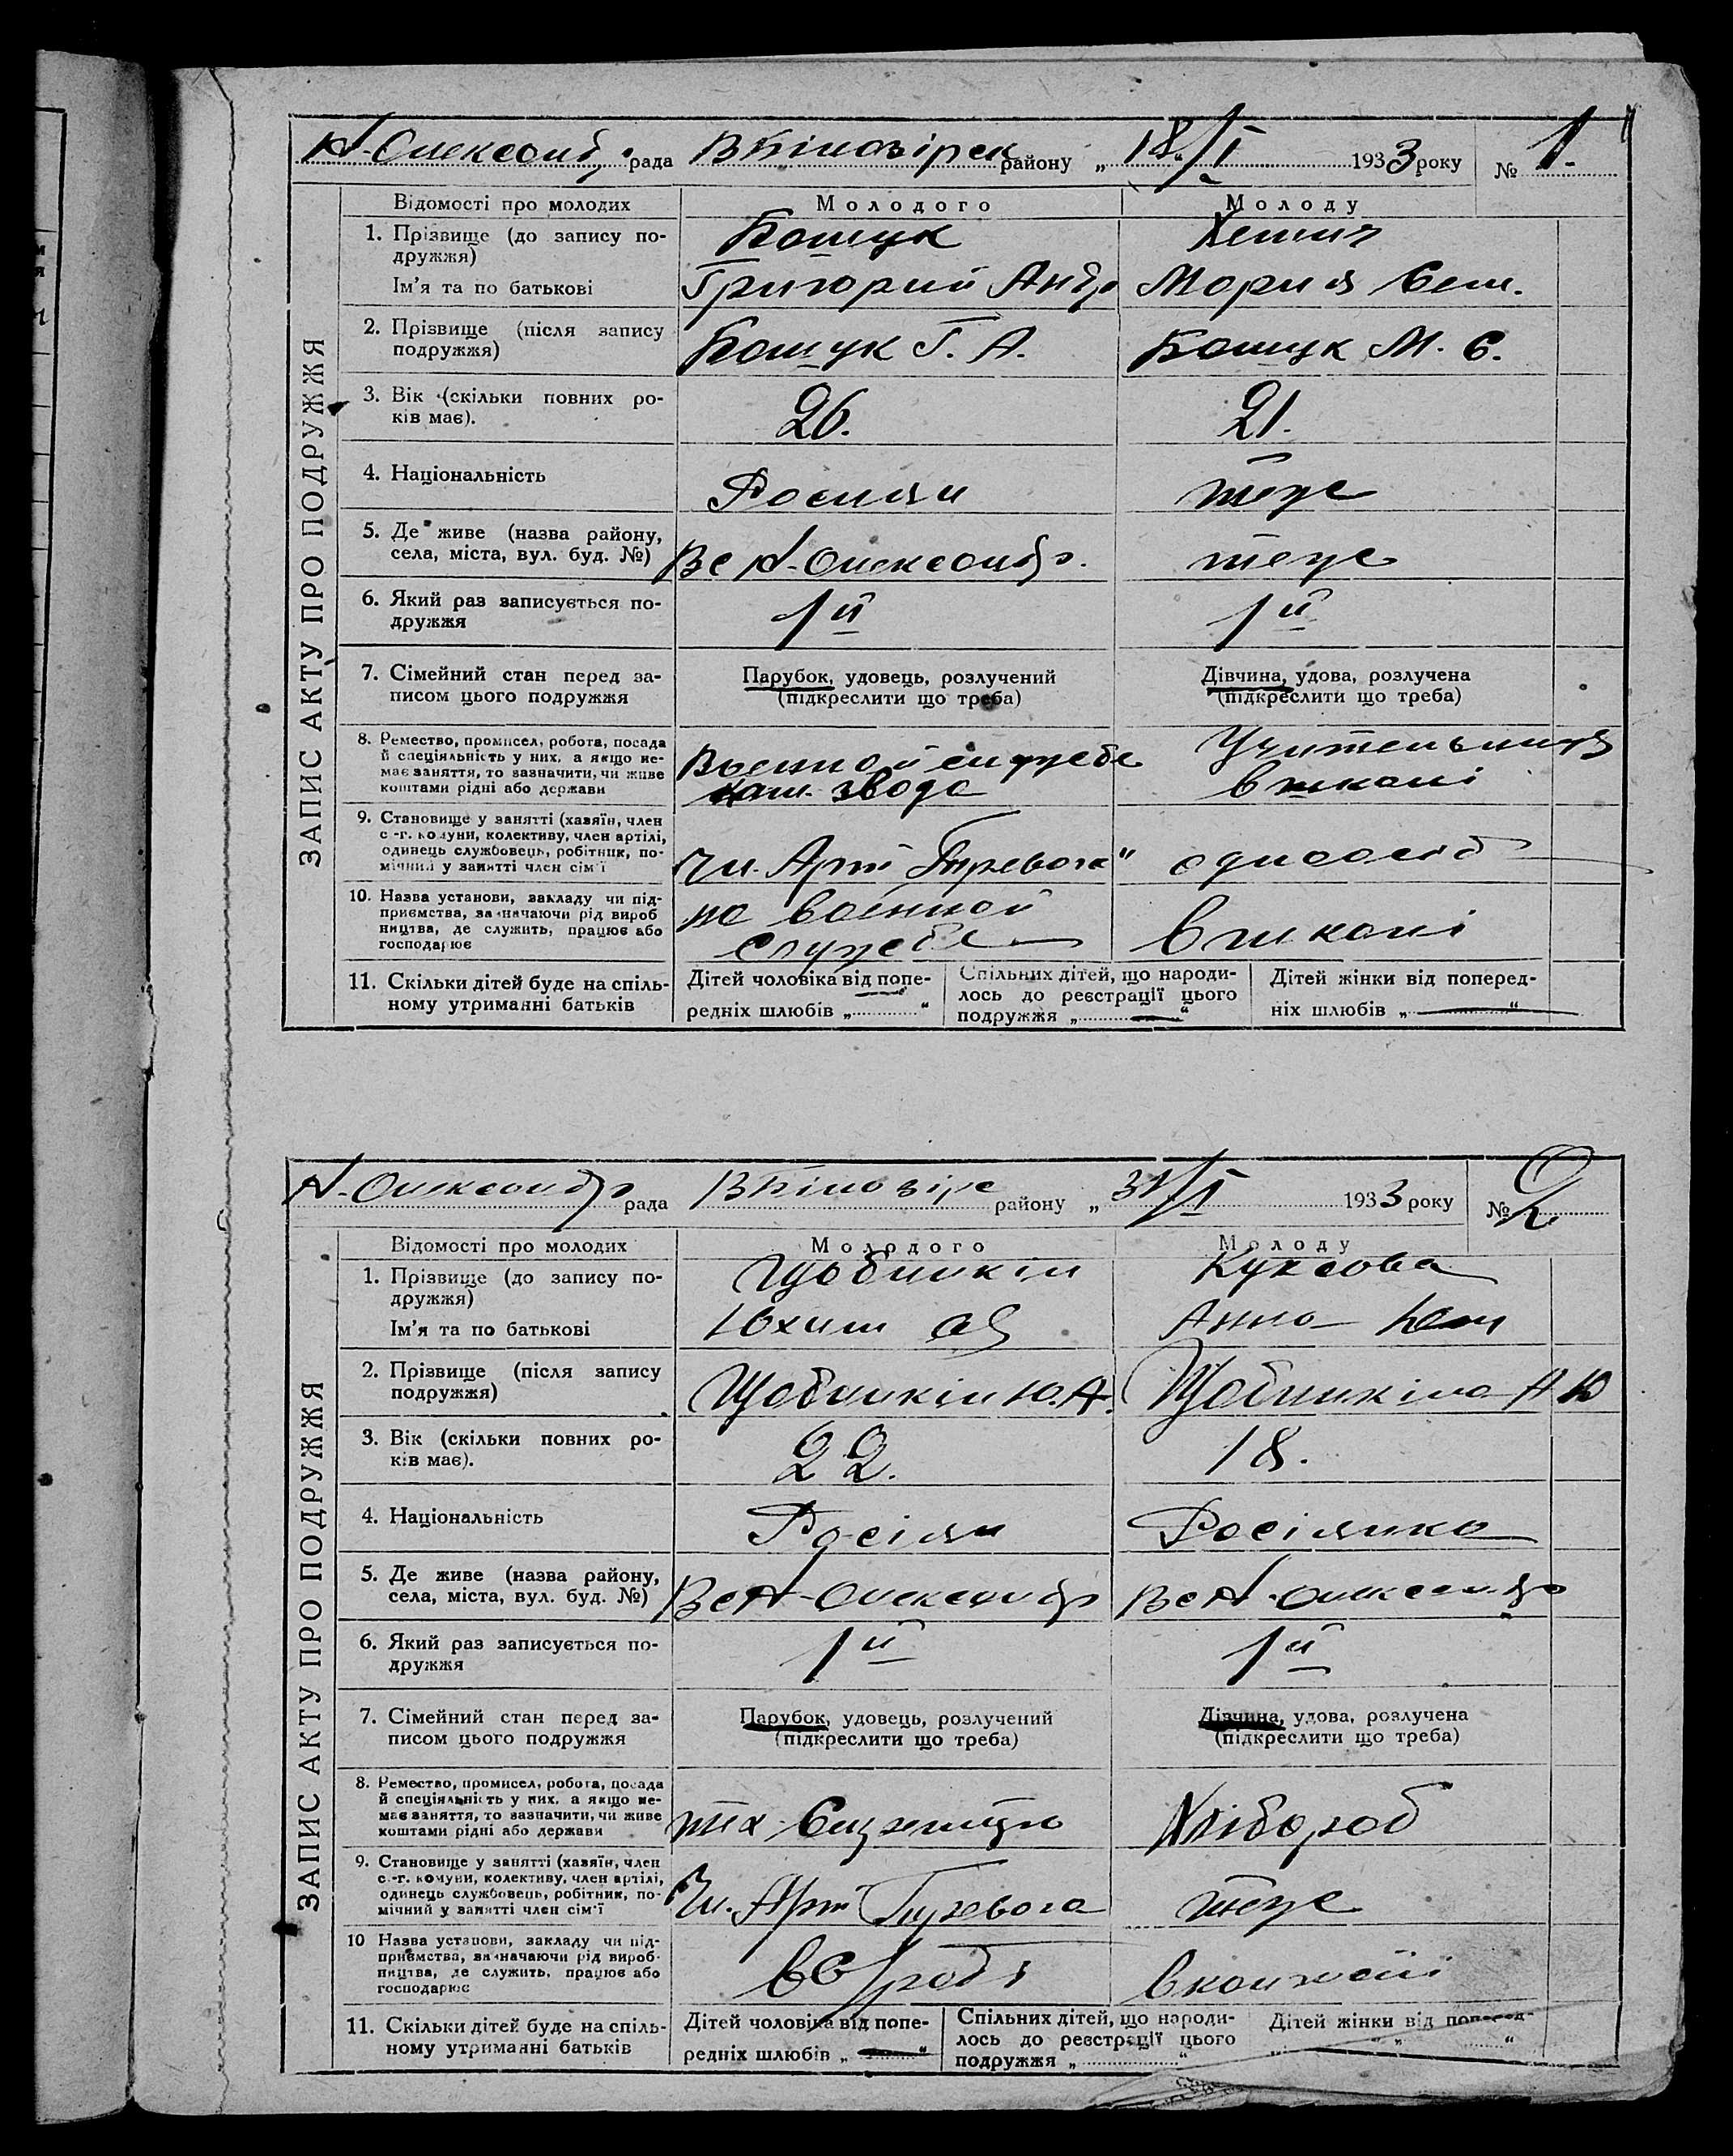 Н-Олександр. рада В Білозірск району „18“/I 1933 року № 1.
Відомості про молодих Молодого Молоду
1. Прізвище (до запису по-
дружжя) Бощук
Ім’я та по батькові Григорий Андр Мория Сем.
2. Прізвище (після запису
подружжя) Бощук Г. А. Бощук М. С.
3. Вік (скільки повних ро-
ків має). 26. 21.
4. Національність Росиян теже
5. Де живе (назва району,
села, міста, вул. буд. №) В с Н-Олександр. теже
6. Який раз записується по-
дружжя 1й 1й
7. Сімейний стан перед за-
писом цього подружжя
Парубок, удовець, розлучений
(підкреслити що треба)
Дівчина, удова, розлучена
(підкреслити що треба)
8. Ремество, промисел, робота, посада
й спеціяльність у них, а якщо не-
має заняття, то зазначити, чи живе
коштами рідні або держави
Военной службе
звода
Учительница
в школі
9. Становище у занятті (хазяїн, член
с.-г. комуни, колективу, член артілі,
одинець службовець, робітник, по-
мічний у занятті член сім’ї
Чл. Арт
одноосіб
10. Назва установи, закладу чи під-
приємства, зазначаючи рід вироб
ництва, де служить, працює або
господарює
на военной
службе
в школі
11. Скільки дітей буде на спіль-
ному утриманні батьків
Дітей чоловіка від попе-
редніх шлюбів „ “
Спільних дітей, що народи-
лось до реєстрації цього
подружжя „ “
Дітей жінки від поперед-
ніх шлюбів „ “
ЗАПИС АКТУ ПРО ПОДРУЖЖЯ
Н-Олександр рада В Білозірс району „31/I 1933 року № 2
Відомості про молодих Молодого Молоду
1. Прізвище (до запису по-
дружжя) Щобникін Куксова
Ім’я та по батькові Юхим Анна
2. Прізвище (після запису
подружжя) Щобникін Ю.А. Щобникіна А Ю
3. Вік (скільки повних ро-
ків має). 22. 18.
4. Національність Росіян Росіянка
5. Де живе (назва району,
села, міста, вул. буд. №) В с Н-Олександр В с Н-Олександр
6. Який раз записується по-
дружжя 1й 1й
7. Сімейний стан перед за-
писом цього подружжя
Парубок, удовець, розлучений
(підкреслити що треба)
Дівчина, удова, розлучена
(підкреслити що треба)
8. Ремество, промисел, робота, посада
й спеціяльність у них, а якщо не-
має заняття, то зазначити, чи живе
коштами рідні або держави
Хлібороб
9. Становище у занятті (хазяїн, член
с.-г. комуни, колективу, член артілі,
одинець службовець, робітник, по-
мічний у занятті член сім’ї
Чл. Арт
теже
10 Назва установи, закладу чи під-
приємства, зазначаючи рід вироб-
ництва, де служить, працює або
господарює
11. Скільки дітей буде на спіль-
ному утриманні батьків
Дітей чоловіка від попе-
редніх шлюбів „ “
Спільних дітей, що народи-
лось до реєстрації цього
подружжя „ “
Дітей жінки від поперед-
„ “
ЗАПИС АКТУ ПРО ПОДРУЖЖЯ